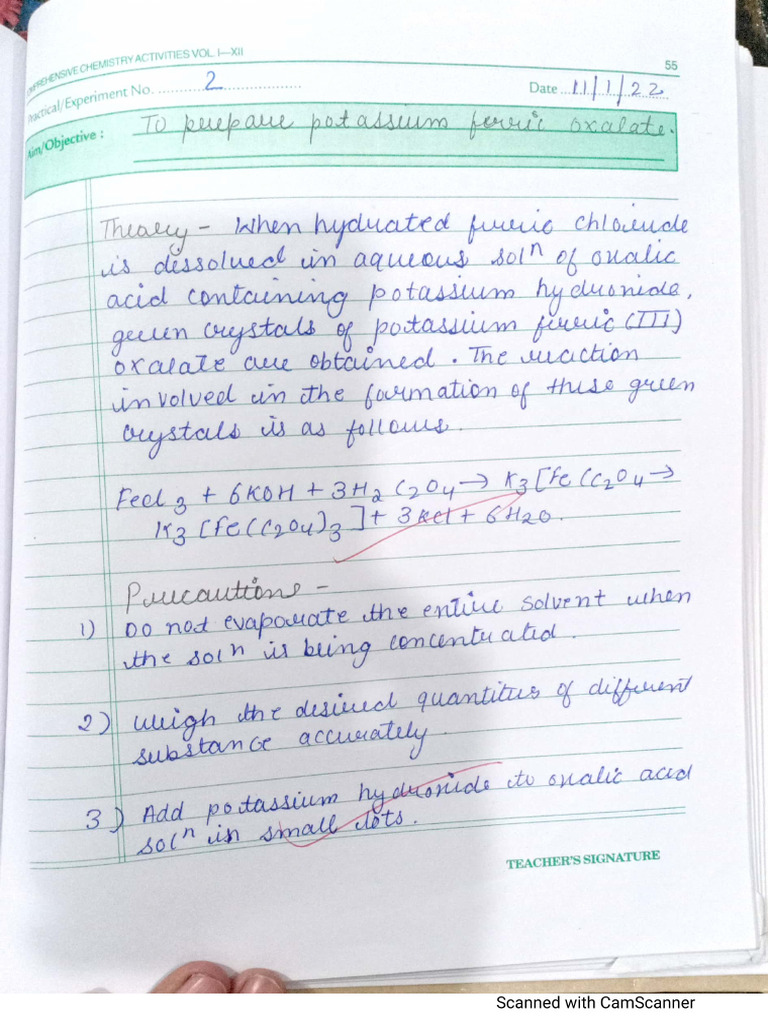 COMPREHENSIVE CHEMISTRY ACTIVITIES VOL. I—XII
55
Practical/Experiment No. 2
Date 11/1/22
Aim/Objective : To prepare potassium ferric oxalate.
Theory - When hydrated ferric chloride
is dissolved in aqueous solⁿ of oxalic
acid containing potassium hydroxide,
green crystals of potassium ferric (III)
oxalate are obtained. The reaction
involved in the formation of these green
crystals is as follows.
Fecl3 + 6KOH + 3H2 C2O4 → K3 [Fe (C2O4 →
K3 [Fe(C2O4)3] + 3Kcl + 6H2O.
Precautions -
1) Do not evaporate the entire solvent when
the solⁿ is being concentrated.
2) Weigh the desired quantities of different
substance accurately.
3) Add potassium hydroxide to oxalic acid
solⁿ in small lots.
TEACHER'S SIGNATURE
Scanned with CamScanner